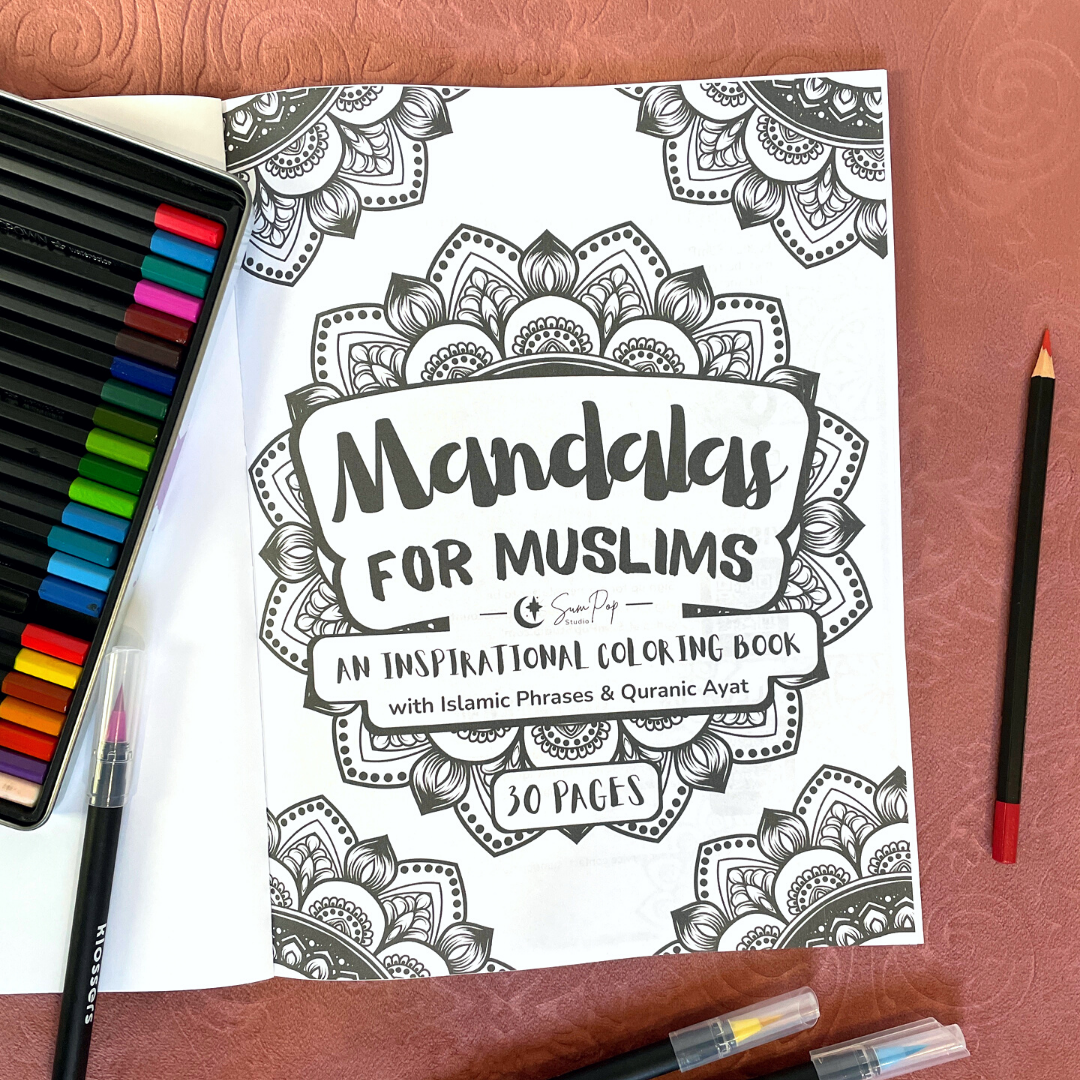 Mandalas
FOR MUSLIMS
SumPop
Studio
AN INSPIRATIONAL COLORING BOOK
with Islamic Phrases & Quranic Ayat
30 PAGES
klossers